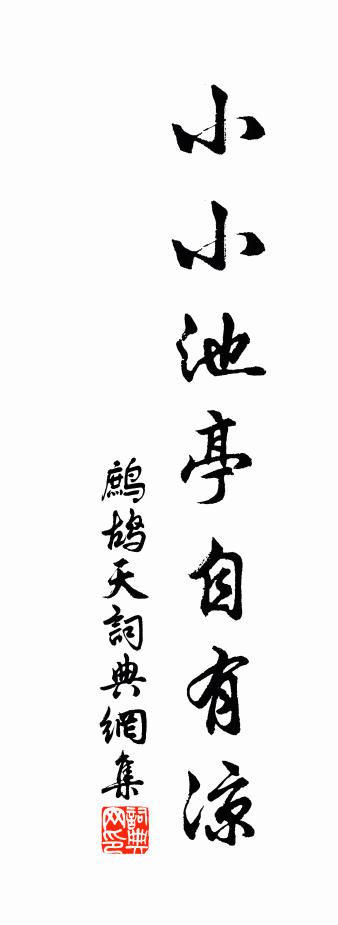 小小池亭自有涼
鷓鴣天詞典網集
詞典網印